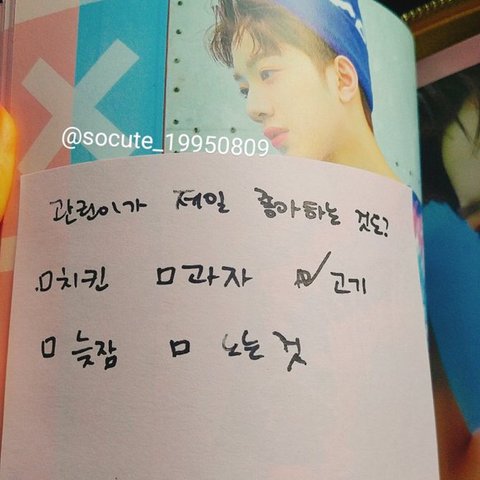 @socute_19950809
관린이가 제일 좋아하는 것도?
□치킨 □과자 ☑고기
□ 늦잠 □ 노는 것